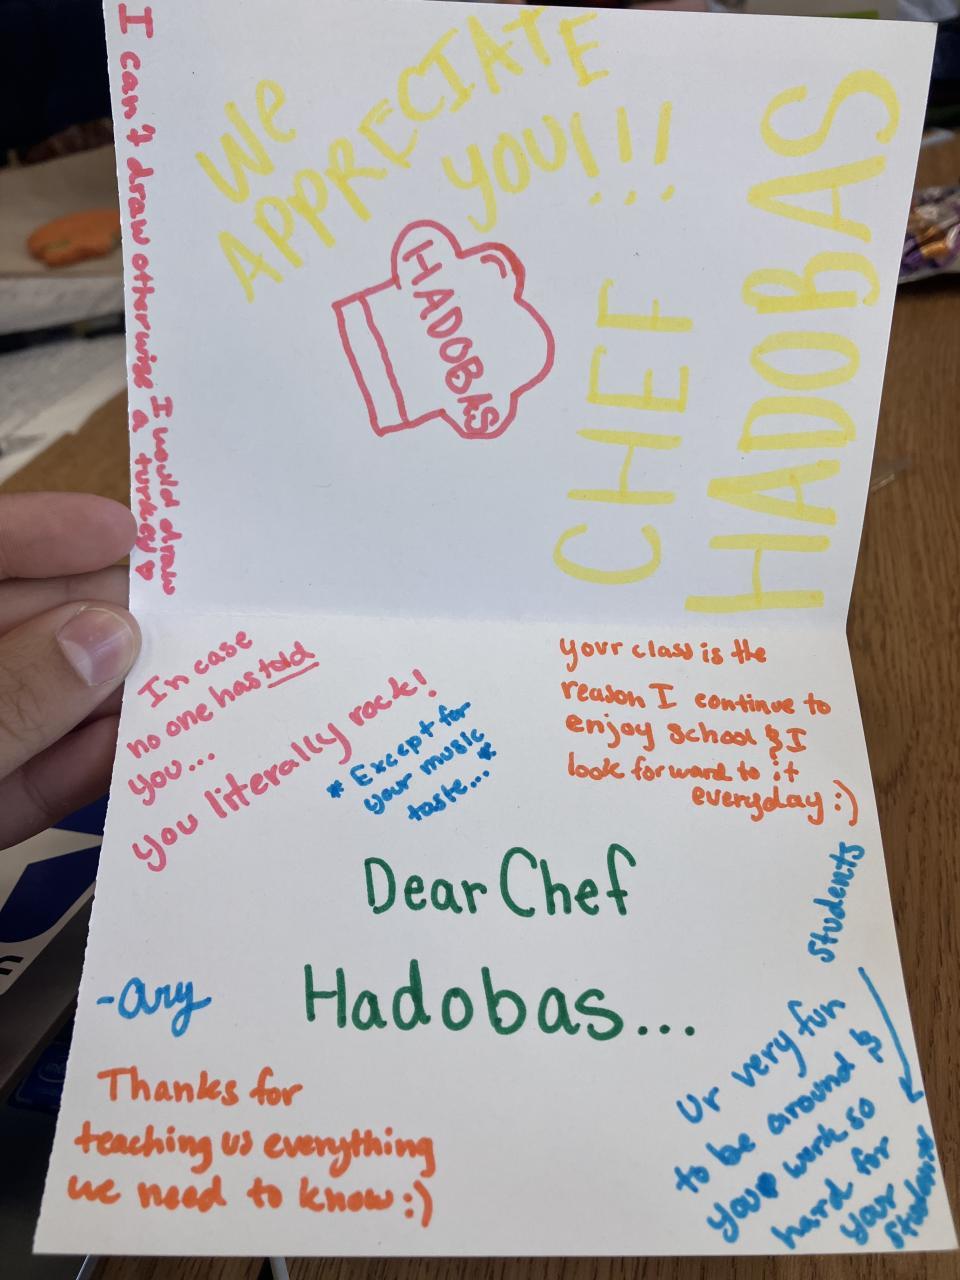 I can't draw otterwise I would draw
a turkey
We
APPRECIATE
YOU!!!
HADOBAS
CHEF
HADOBAS
In case
no one has told
you...
you literally rock!
* Except for
your music
taste...*
your class is the
reason I continue to
enjoy school & I
look forward to it
everyday :)
Dear Chef
Hadobas...
-Ary
Thanks for
teaching us everything
we need to know :)
Ur very fun
to be around &
you work so
hard for
your
students
students